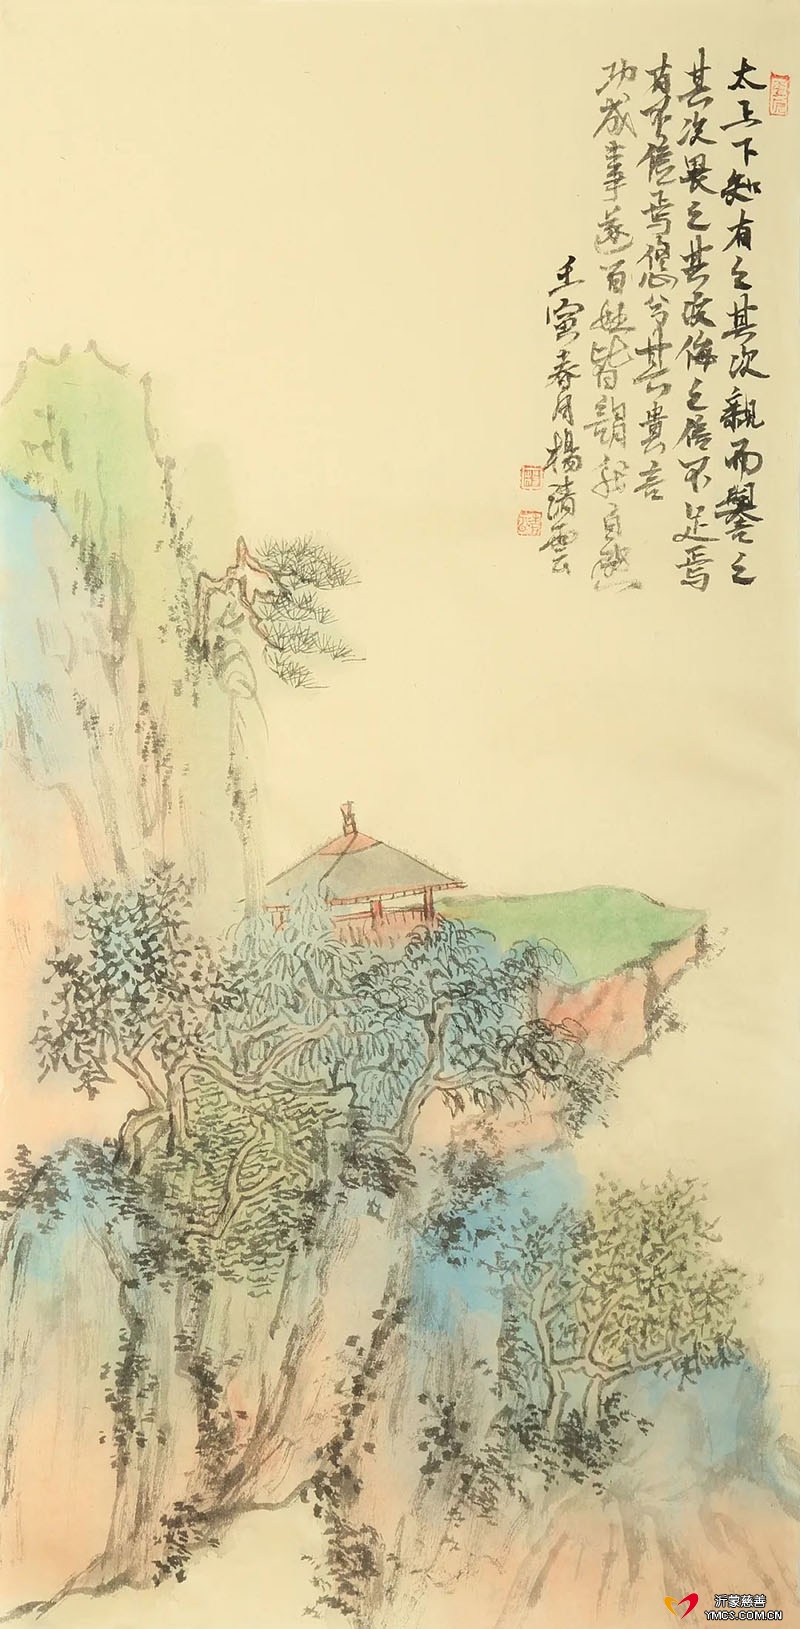 太上下知有之其次親而譽之
其次畏之其次侮之信不足焉
有不信焉悠兮其貴言
功成事遂百姓皆謂我自然
壬寅春月楊清雲
沂蒙慈善
YMCS.COM.CN